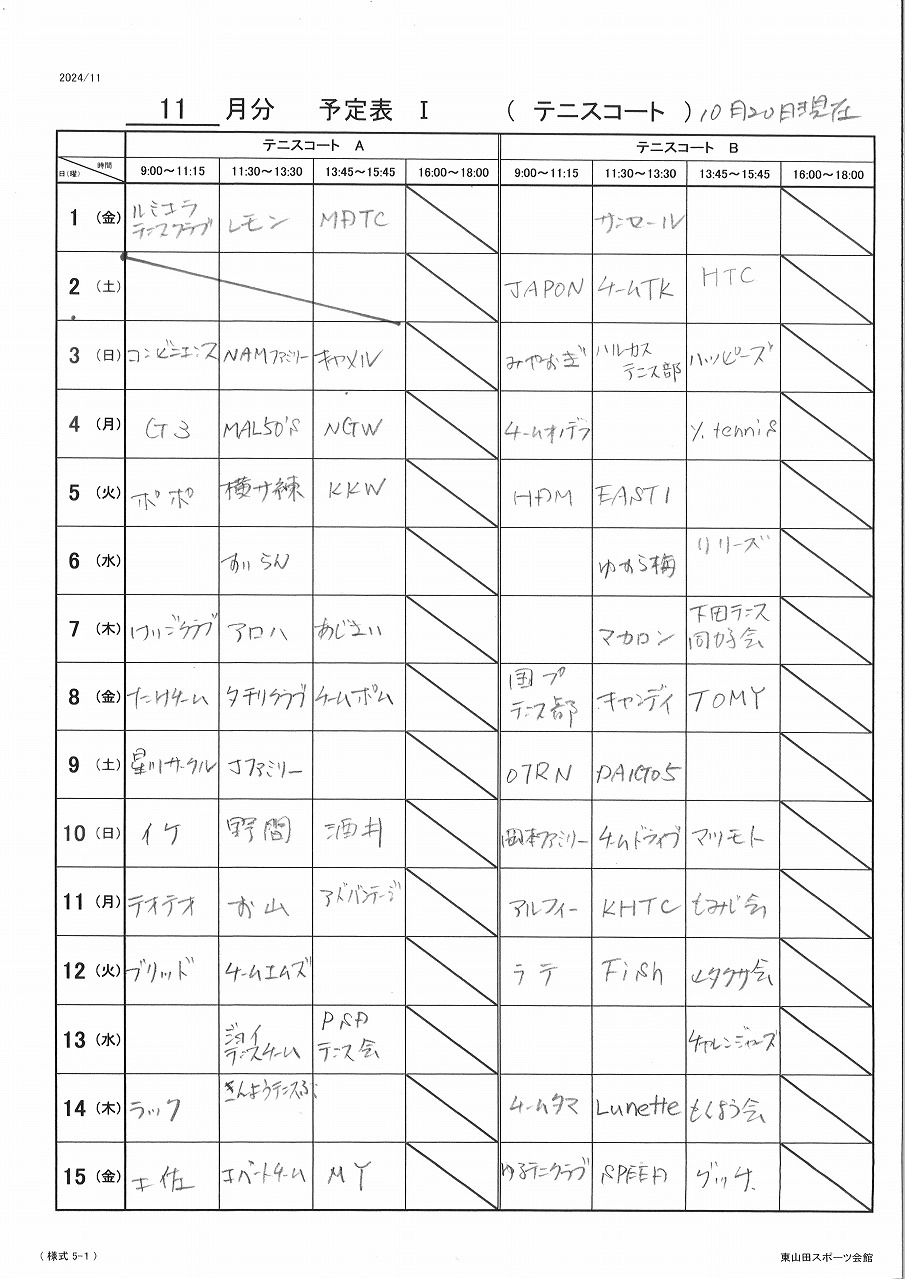 2024/11
11 月分 予定表 Ⅰ ( テニスコート ) 10月20日現在
テニスコート A テニスコート B
日(曜) 時間 9:00～11:15 11:30～13:30 13:45～15:45 16:00～18:00 9:00～11:15 11:30～13:30 13:45～15:45 16:00～18:00
1 (金) ルミエラ テニスクラブ レモン MATC サンセール
2 (土) JAPON チームTK HTC
3 (日) コンビニエンス NAMファミリー キャメル みやおぎ ハルカス テニス部 ハッピーズ
4 (月) G3 MAL50'S NGW チームオノデラ Y.tennis
5 (火) ポポ 横サ練 KKW HAM EAST1
6 (水) すいらん ゆから梅 リリーズ
7 (木) けいごクラブ アロハ あじさい マカロン 下田テニス 同好会
8 (金) たけチーム タチリクラブ チームボム 国プ テニス部 キャンディ TOMY
9 (土) 星川サークル Jファミリー OTRN DAIGO5
10 (日) イケ 野間 酒井 岡本ファミリー チームドライブ マツモト
11 (月) テオテオ お山 アドバンテージ アルフィー KHTC もみじ会
12 (火) ブリッド チームエムズ ラテ Fish ヒタクサ会
13 (水) ジョイ テニスチーム PSA テニス会 チャレンジャーズ
14 (木) ラック きんようテニス チームタマ Lunette もくよう会
15 (金) 土佐 エバートチーム MY ゆるテニクラブ SPEED グッチ
(様式 5-1) 東山田スポーツ会館